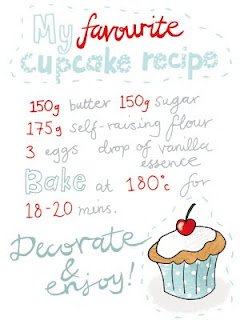 My favourite
cupcake recipe
150g butter 150g sugar
175g self-raising flour
3 eggs drop of vanilla
essence
Bake at 180°c for
18-20 mins.
Decorate
&
enjoy!